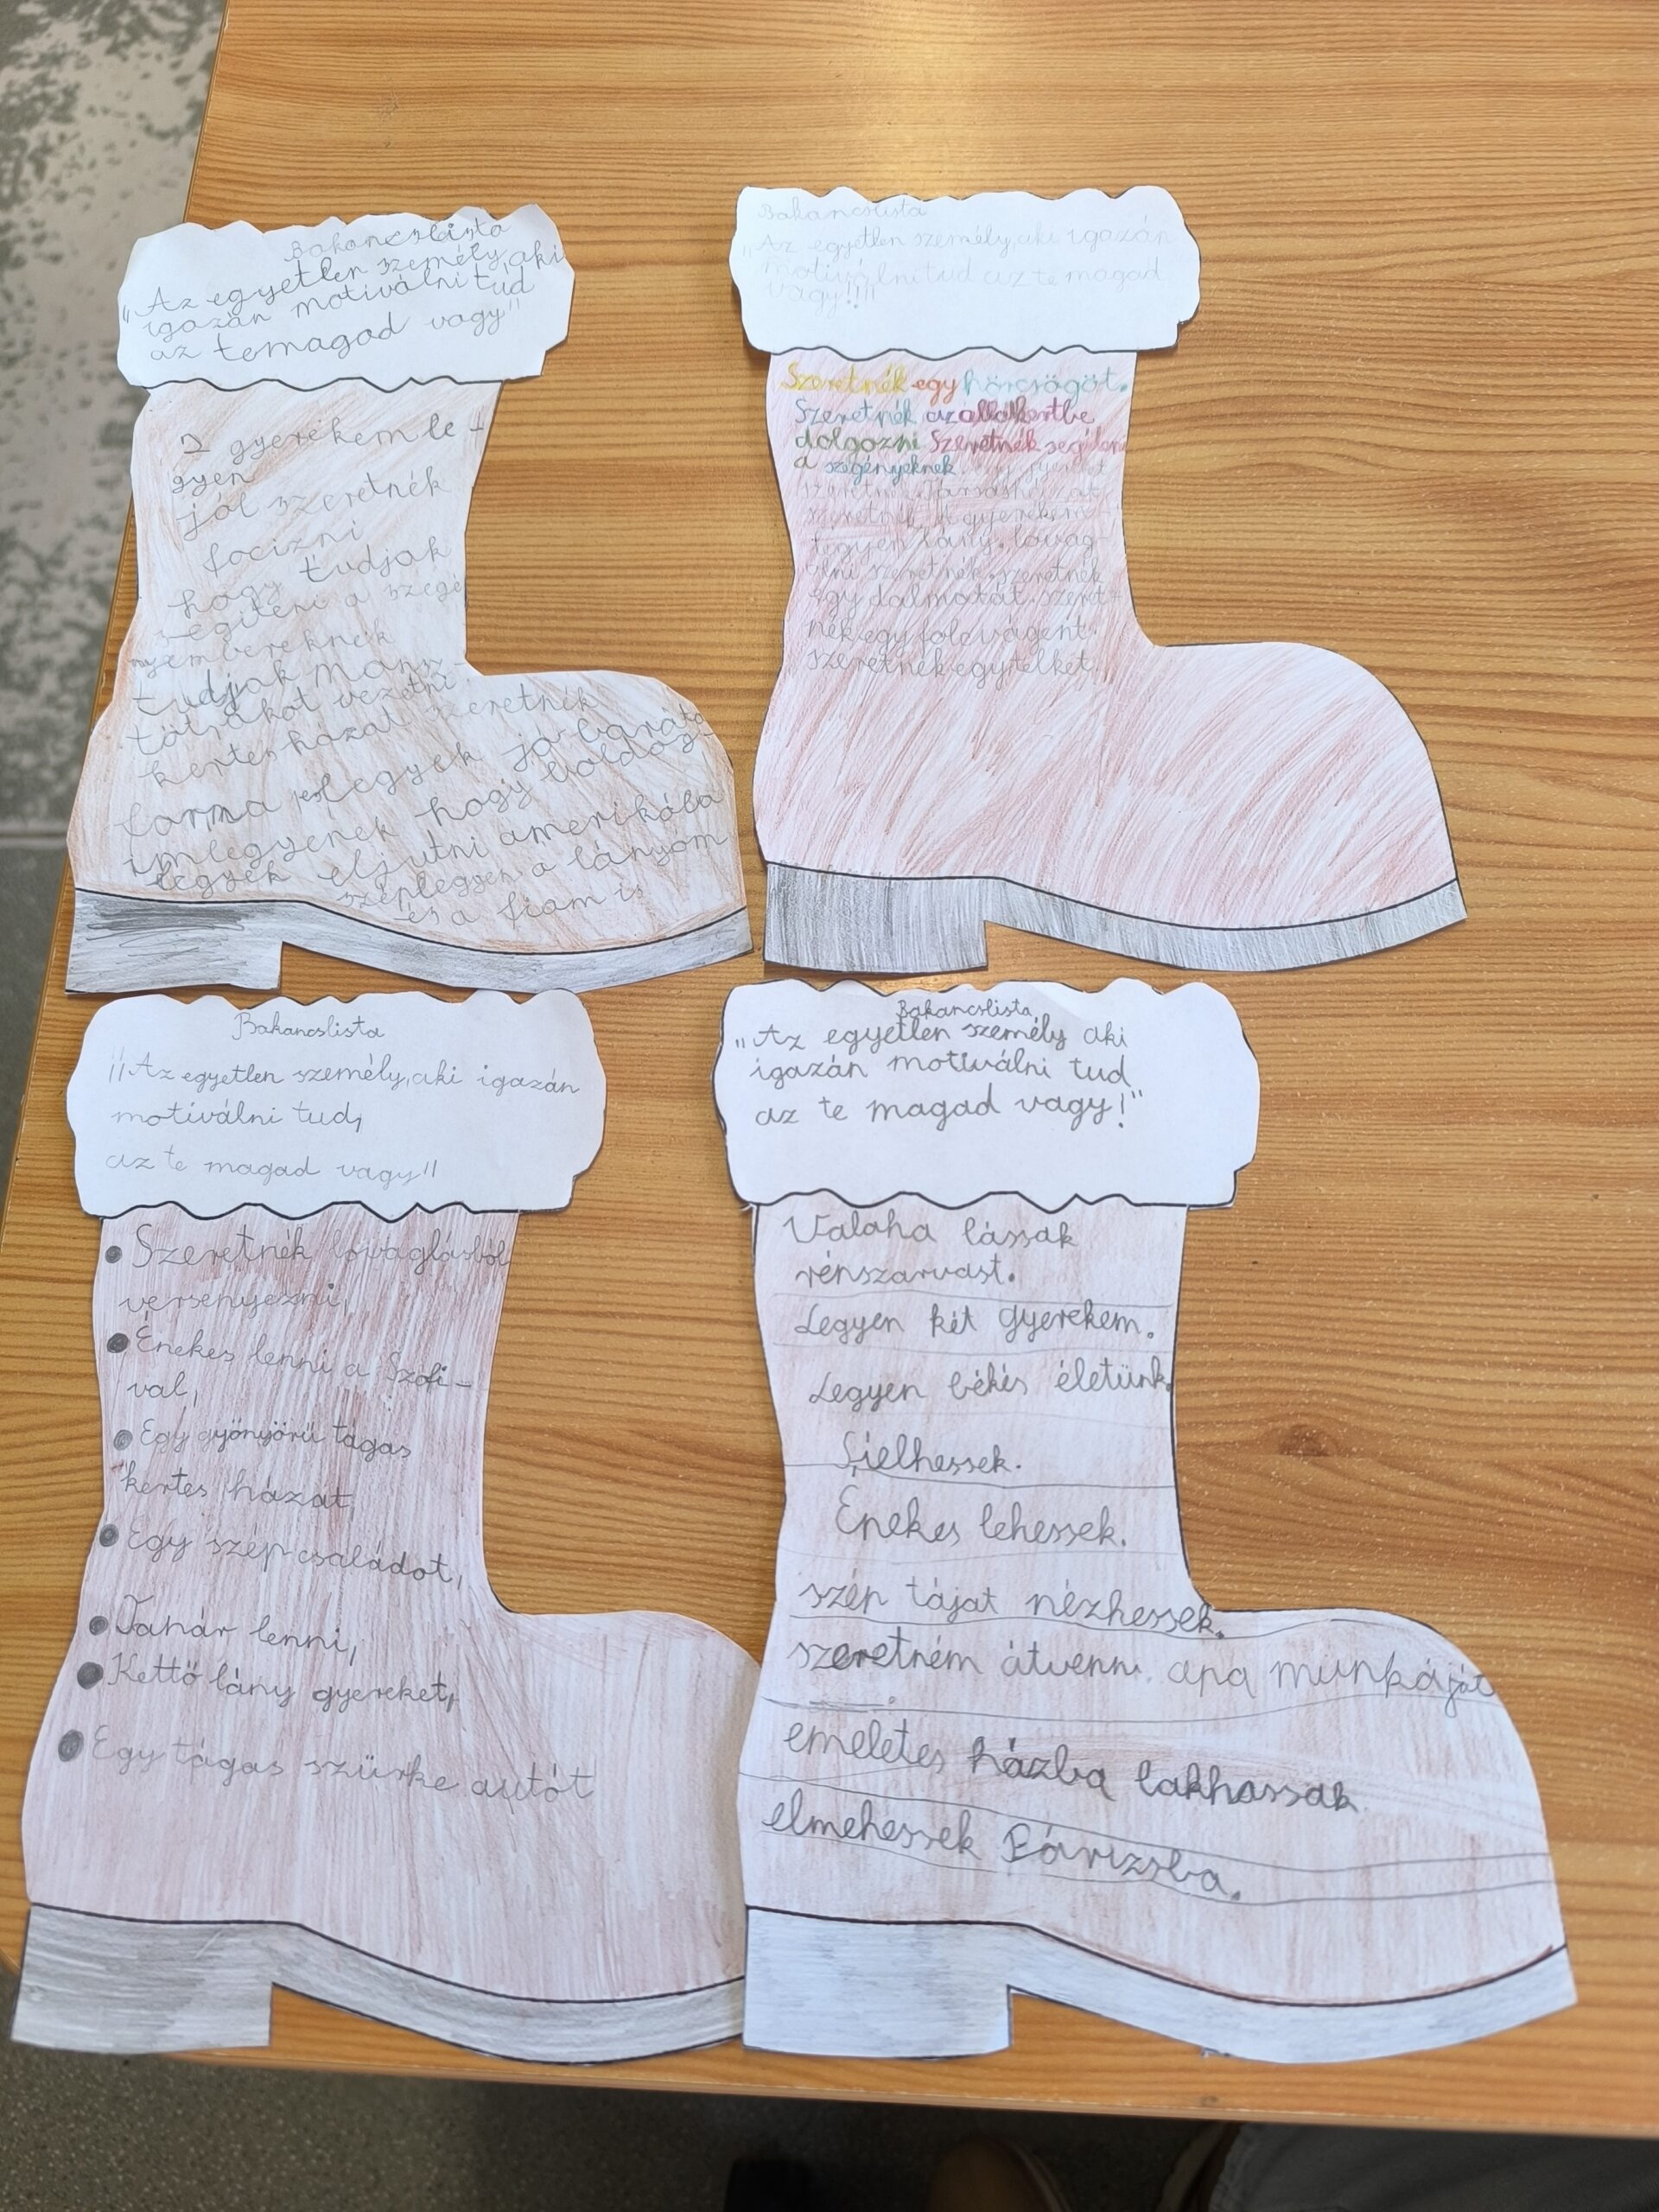 Bakancslista
„Az egyetlen személy, aki
igazán motiválni tud
az temagad vagy"
2 gyerekem le-
gyen
jól szeretnék
focizni
hogy tudjak
segíteni a szegé
nyembereknek
tudjak Monsz-
tötrákot vezetni
kertes házat szeretnék
forma legyek jó barát
imlegyenek hogy boldog
legyek eljutni amerikába
széplegyen a lányom
és a fiam is
Bakancslista
„Az egyetlen személy, aki igazán
motiválni tud az te magad
vagy!!"
Szeretnék egy hörcsögöt.
Szeretnék az állatkertbe
dolgozni Szeretnék segíteni
a szegényeknek. gyereket
szeretnék Társasházat
szeretnék. A gyerekem
legyen lány. lovag-
olni szeretnék. szeretnék
egy dalmatát. szeret-
nék egy
szeretnék egy telket.
Bakancslista
„Az egyetlen személy, aki igazán
motiválni tud,
az te magad vagy"
• Szeretnék lovaglásból
versenyezni,
• Énekes lenni a Szofi-
val,
• Egy gyönyörű tágas
kertes házat,
• Egy szép családot,
• Tanár lenni,
• Kettő lány gyereket,
• Egy tágas szürke autót
Bakancslista
„Az egyetlen személy aki
igazán motiválni tud
az te magad vagy!"
Valaha lássak
rénszarvast.
Legyen két gyerekem.
Legyen békés életünk.
Síelhessek.
Énekes lehessek.
szép tájat nézhessek.
szeretném átvenni apa munkáját
emeletes házba lakhassak
elmehessek Párizsba.